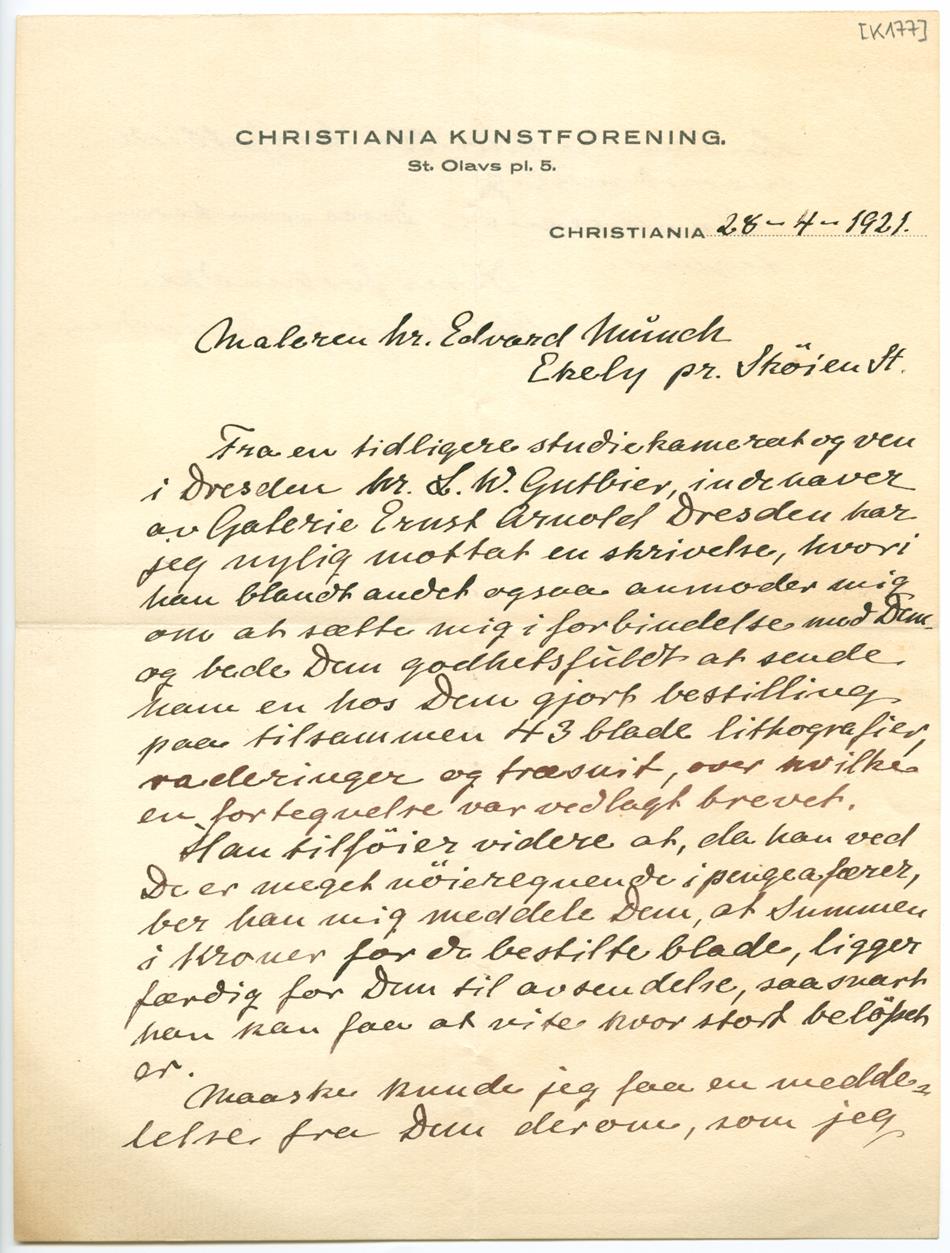 [K177]
CHRISTIANIA KUNSTFORENING.
St. Olavs pl. 5.
CHRISTIANIA 28-4-1921.
Maleren hr. Edvard Münch
Ekely pr. Sköien St.
Fra en tidligere studiekamerat og ven
i Dresden hr. L. W. Gutbier, indehaver
av Galerie Ernst Arnold Dresden har
jeg nylig mottat en skrivelse, hvori
han blandt andet ogsaa anmoder mig
om at sætte mig i forbindelse med Dem
og bede Dem godhetsfuldt at sende
ham en hos Dem gjort bestilling
paa tilsammen 43 blade lithografier,
raderinger og træsnit, over hvilke
en fortegnelse var vedlagt brevet.
Han tilföier videre at, da han ved
De er meget nöieregnende i pengeafærer,
ber han mig meddele Dem, at Summen
i Kroner for de bestilte blade, ligger
færdig for Dem til avsendelse, saasnart
han kan faa at vite hvor stort belöpet
er.
Maaske kunde jeg faa en medde-
lelse fra Dem derom, som jeg